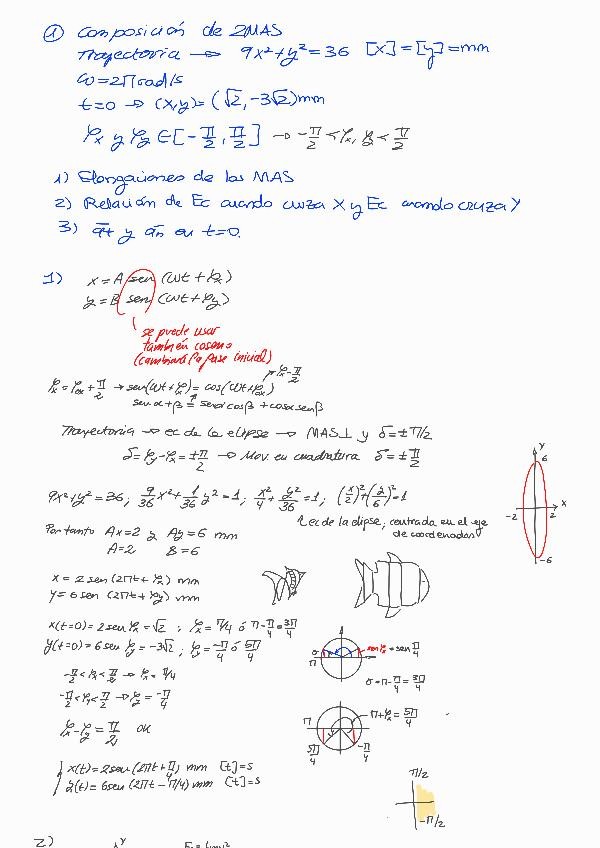 ① Composición de 2MAS
Trayectoria → 9x²+y²=36 [x]=[y]=mm
ω=2π rad/s
t=0 → (x,y)=(√2,-3√2)mm
φx y φy ∈[-π/2, π/2] → -π/2 < φx, φy < π/2
1) Elongaciones de los MAS
2) Relación de Ec cuando cruza X y Ec cuando cruza Y
3) at y an en t=0.
1) x = A sen (ωt + φx)
y = B sen (ωt + φy)
se puede usar
también coseno
(cambiará la fase inicial)
φx - π/2
φx = φox + π/2 → sen(ωt+φx) = cos(ωt+φox)
sen α+β = senα cosβ + cosα senβ
Trayectoria → ec de la elipse → MAS⊥ y δ=±π/2
δ=φy-φx=±π/2 → Mov. en cuadratura δ=±π/2
9x²+y²=36; 9/36 x²+1/36 y²=1; x²/4+y²/36=1; (x/2)²+(y/6)²=1
ec de la elipse, centrada en el eje
de coordenadas
Y
6
X
-2
2
-6
Por tanto Ax=2 y Ay=6 mm
A=2 B=6
x = 2 sen (2πt+φx) mm
y = 6 sen (2πt+φy) mm
x(t=0)=2senφx=√2; φx=π/4 ó π-π/4=3π/4
y(t=0)=6senφy=-3√2; φy=-π/4 ó 5π/4
senφx=senπ/4
π
σ=π-π/4=3π/4
-π/2<φx<π/2 → φx=π/4
-π/2<φy<π/2 → φy=-π/4
φx-φy=π/2 OK
π
π+φx=5π/4
5π/4
-π/4
x(t)=2sen(2πt+π/4) mm [t]=s
y(t)=6sen(2πt-π/4) mm [t]=s
π/2
-π/2
2)
Y